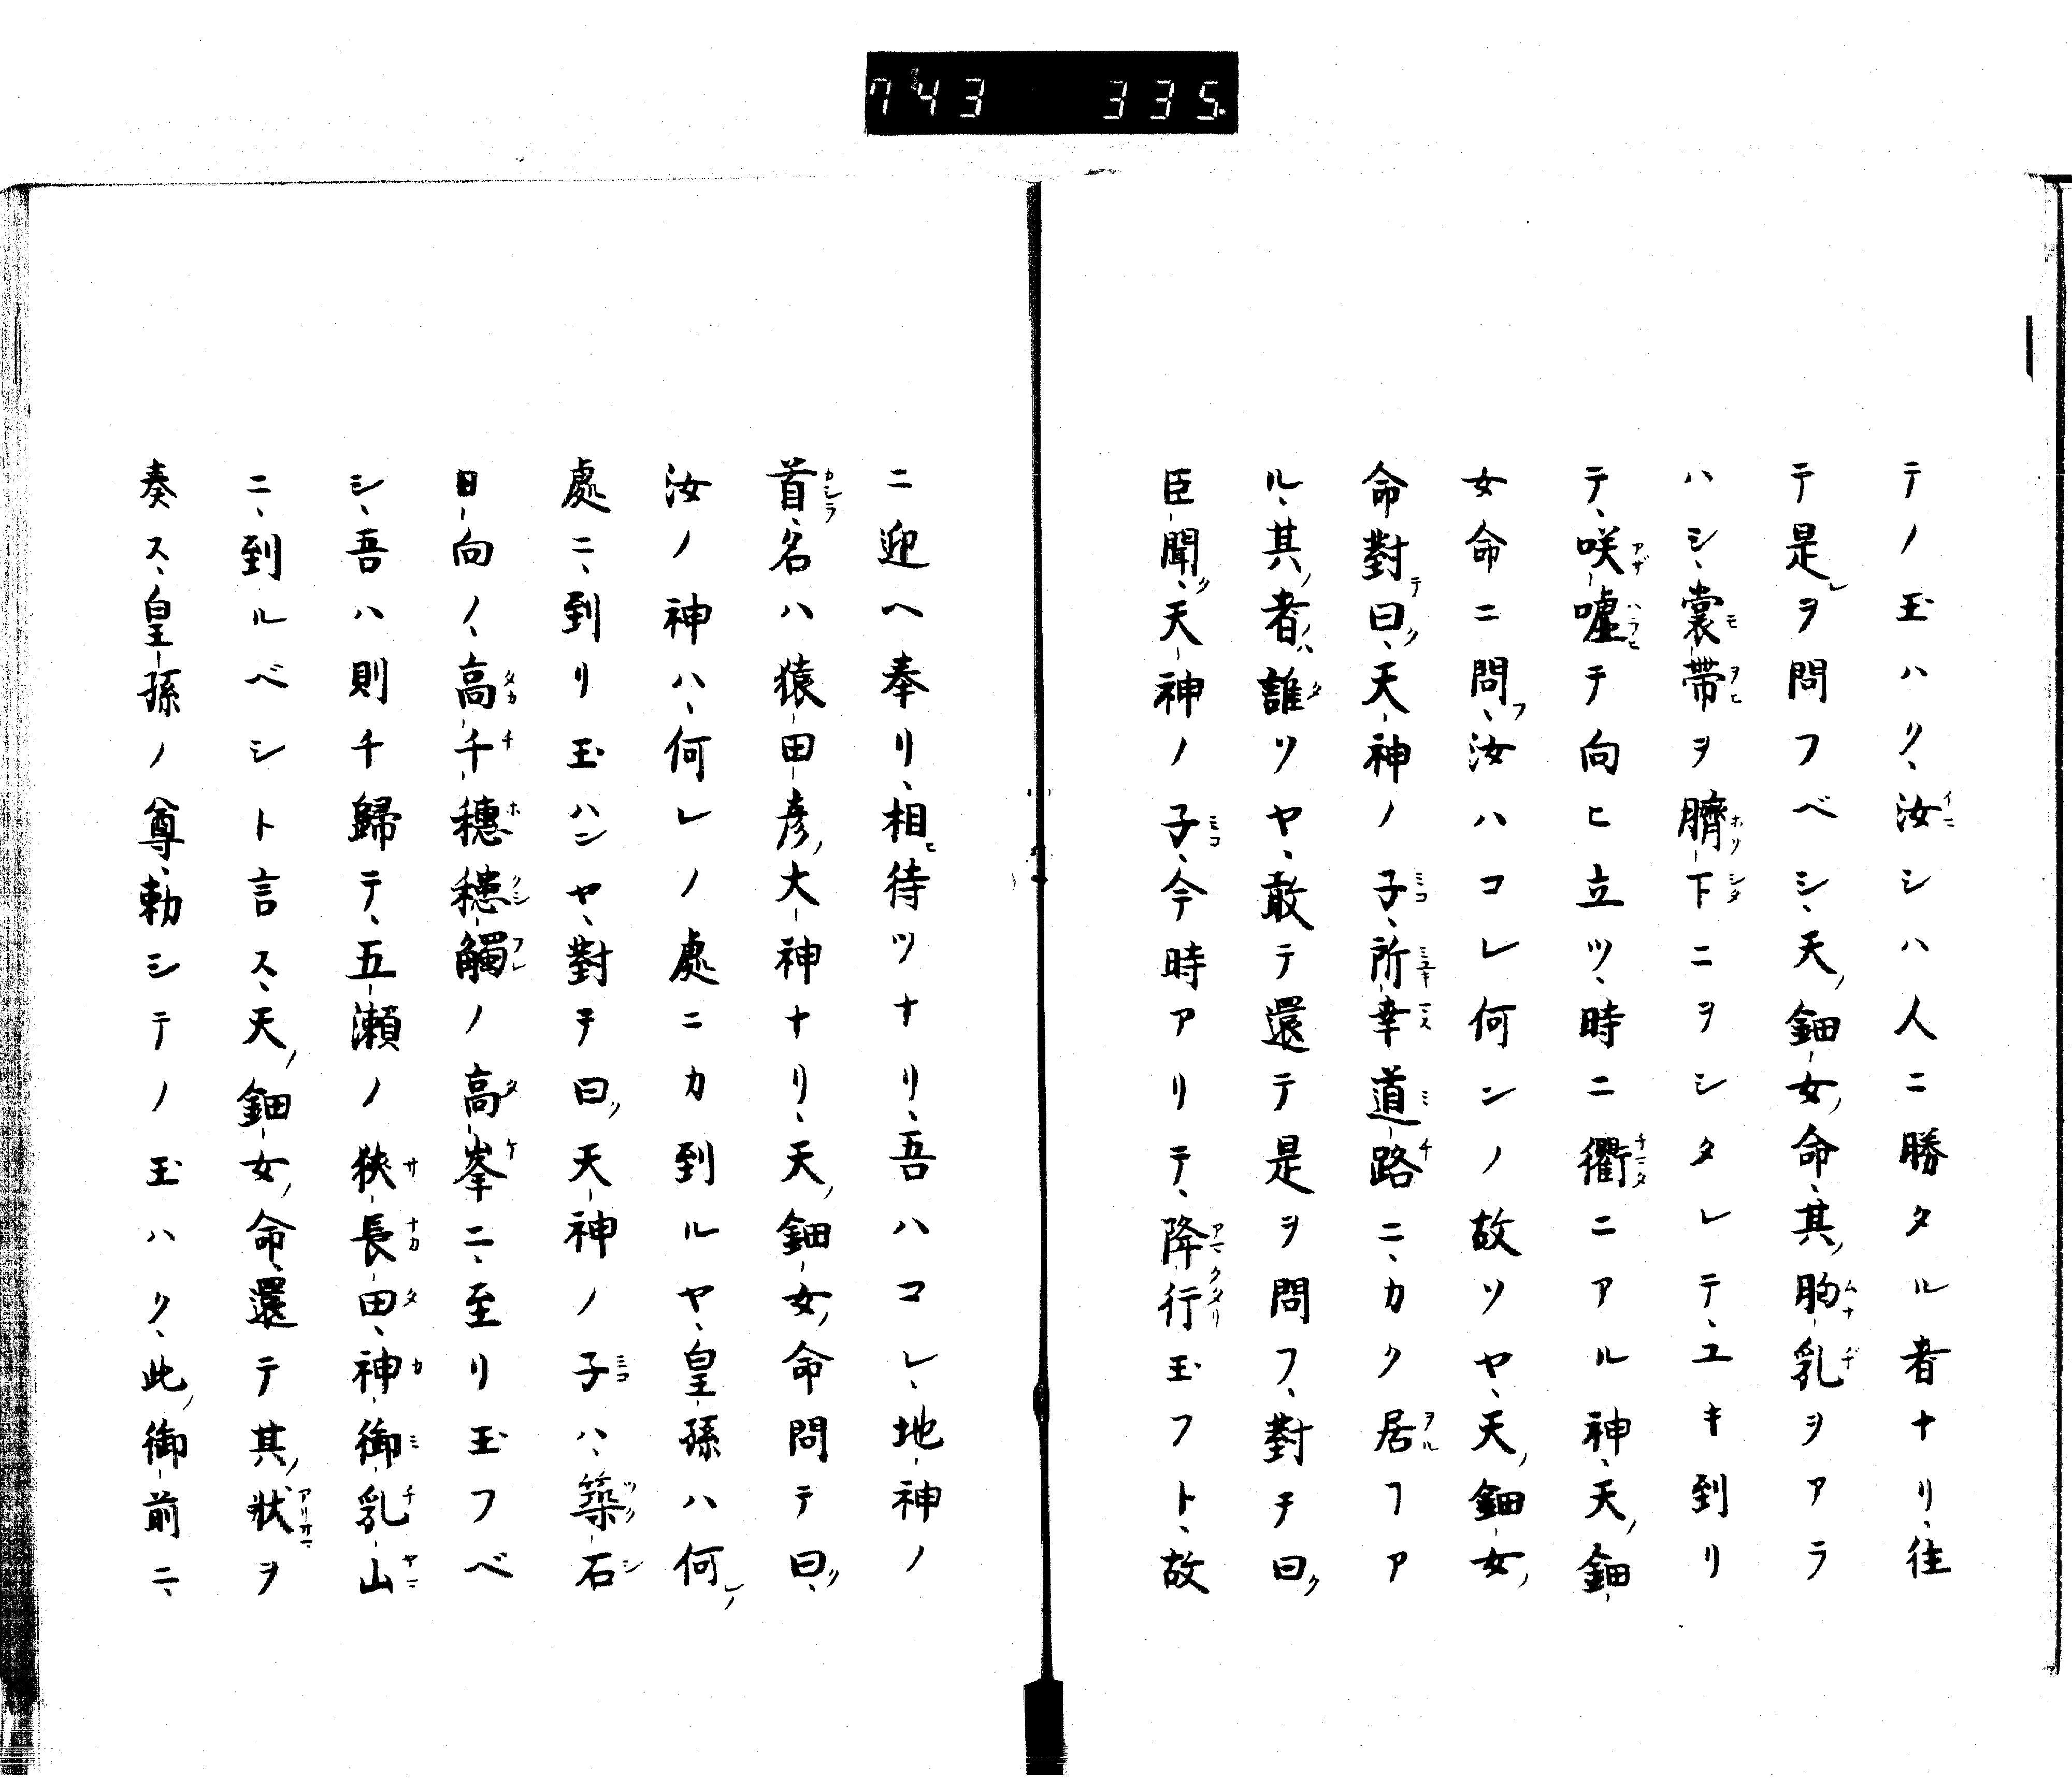 743 335
テノ玉ハク、汝シハ人ニ勝タル者ナリ、往
テ是レヲ問フベシ、天ノ鈿女ノ命、其ノ胸乳ヲアラ
ハシ、裳帶ヲ臍下ニヲシタレテ、ユキ到リ
テ、咲噓テ向ヒ立ツ、時ニ衢ニアル神、天ノ鈿
女命ニ問フ、汝ハコレ何ンノ故ソヤ、天ノ鈿女ノ
命對テ曰ク、天神ノ子、所幸道路ニ、カク居フア
ル、其ノ者ハ誰ソヤ、敢テ還テ是ヲ問フ、對チ曰ク
臣聞ク、天神ノ子、今時アリテ、降行玉フト、故
ニ迎ヘ奉リ、相ヒ待ツナリ、吾ハコレ、地神ノ
首、名ハ猿田彦ノ大神ナリ、天ノ鈿女ノ命問テ曰ク、
汝ノ神ハ、何レノ處ニカ到ルヤ、皇孫ハ何レノ
處ニ、到リ玉ハンヤ、對チ曰ク、天神ノ子ハ、築石
日向ノ、高千穗穗觸ノ高峯ニ、至リ玉フベ
シ、吾ハ則チ歸テ、五瀬ノ狹長田、神御乳山
ニ、到ルベシト言ス、天ノ鈿女ノ命、還テ其ノ狀ヲ
奏ス、皇孫ノ尊、勅シテノ玉ハク、此ノ御前ニ、